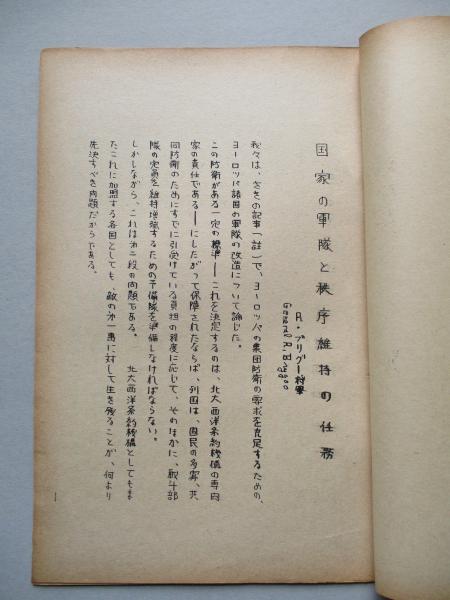 国家の軍隊と秩序維持の任務
R・ブリグー将軍
General R.
我々は、さきの記事(註)で、ヨーロッパの集団防衛の要求を充足するための、
ヨーロッパ諸国の軍隊の改造について論じた。
この防衛がある一定の標準――これを決定するのは、北大西洋条約機構の専門
家の責任である――にしたがって保障されたならば、列国は、国民の多寡、共
同防衛のためにすでに引受けている負担の程度に応じて、そのほかに、戦斗部
隊の定員を維持増強するための予備隊を準備しなければならない。
しかしながら、これは第二段の問題である。 北大西洋条約機構としてもま
たこれに加盟する各国としても、敵の第一撃に対して生き残ることが、何より
先決すべき問題だからである。